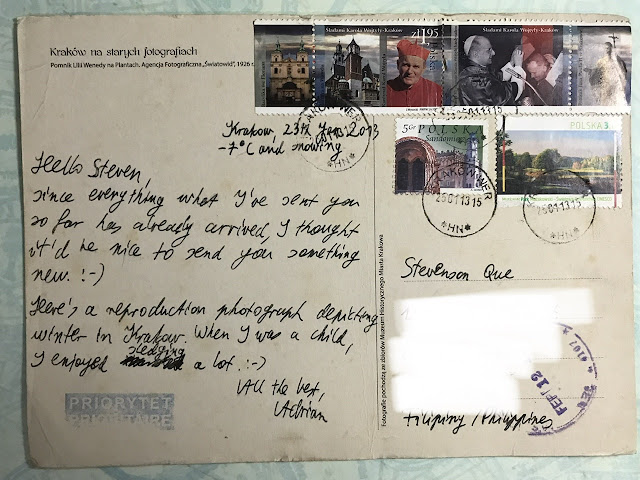 Kraków na starych fotografiach
Pomnik Lilii Wenedy na Plantach. Agencja Fotograficzna „Światowid”, 1926 r.
Śladami Karola Wojtyły-Kraków
zł1,95
Śladami Karola Wojtyły-Kraków
5gr POLSKA
Sandomierz
POLSKA 3
250113 15
*HN*
250113 15
*HN*
*HN*
Krakow, 23th Jan 2013
-7°C and snowing
Hello Steven,
since everything what I've sent you
so far has already arrived, I thought
it'd be nice to send you something
new. :-)
Here's a reproduction photograph depicting
winter in Krakow. When I was a child,
I enjoyed sledging a lot. :-)
All the best,
Adrian
PRIORYTET
PRIORITAIRE
Fotografie pochodzą ze zbiorów Muzeum Historycznego Miasta Krakowa
Stevenson Que
Filipiny / Philippines
FEB 12